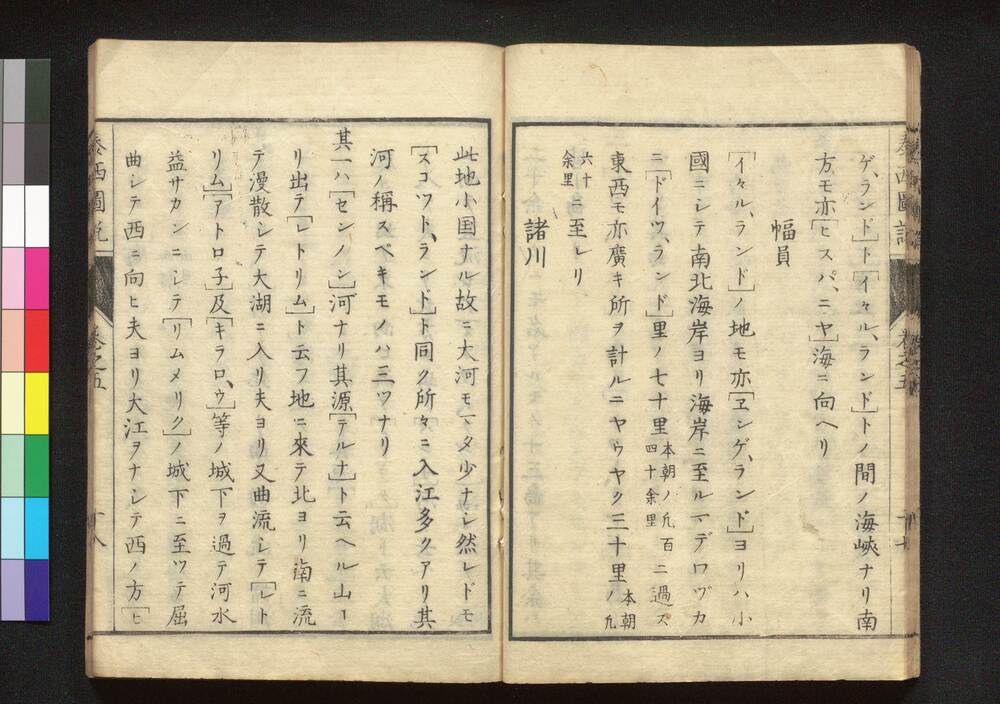 ゲ、ランド」ト「イヽル、ランド」トノ間ノ海峽ナリ南
方モ亦「ヒスパ、ニヤ」海ニ向ヘリ
幅員
「イヽル、ランド」ノ地モ亦「ヱンゲ、ランド」ヨリハ小
國ニシテ南北海岸ヨリ海岸ニ至ルマデワヅカ
ニ「ドイツ、ランド」里ノ七十里本朝ノ凢百二四十余里過ズ
東西モ亦廣キ所ヲ計ルニヤウヤク三十里ノ本朝凢
六十余里ニ至レリ
諸川
泰西圖説
卷之五
十七
此地小国ナル故ニ大河モマタ少ナシ然レドモ
「スコツト、ランド」ト同ク所々ニ入江多クアリ其
河ノ稱スベキモノハ三ツナリ
其一ハ「センノン」河ナリ其源「テルナ」ト云ヘル山ー
リ出テ「レトリム」ト云フ地ニ來テ北ヨリ南ニ流
テ漫散シテ大湖ニ入リ夫ヨリ又曲流シテ「レト
リム」「アトロ子」及「キラロ、ウ」等ノ城下ヲ過テ河水
益サカンニシテ「リムメリク」ノ城下ニ至ツテ屈
曲シテ西ニ向ヒ夫ヨリ大江ヲナシテ西ノ方「ヒ
泰西圖説
卷之五
十八